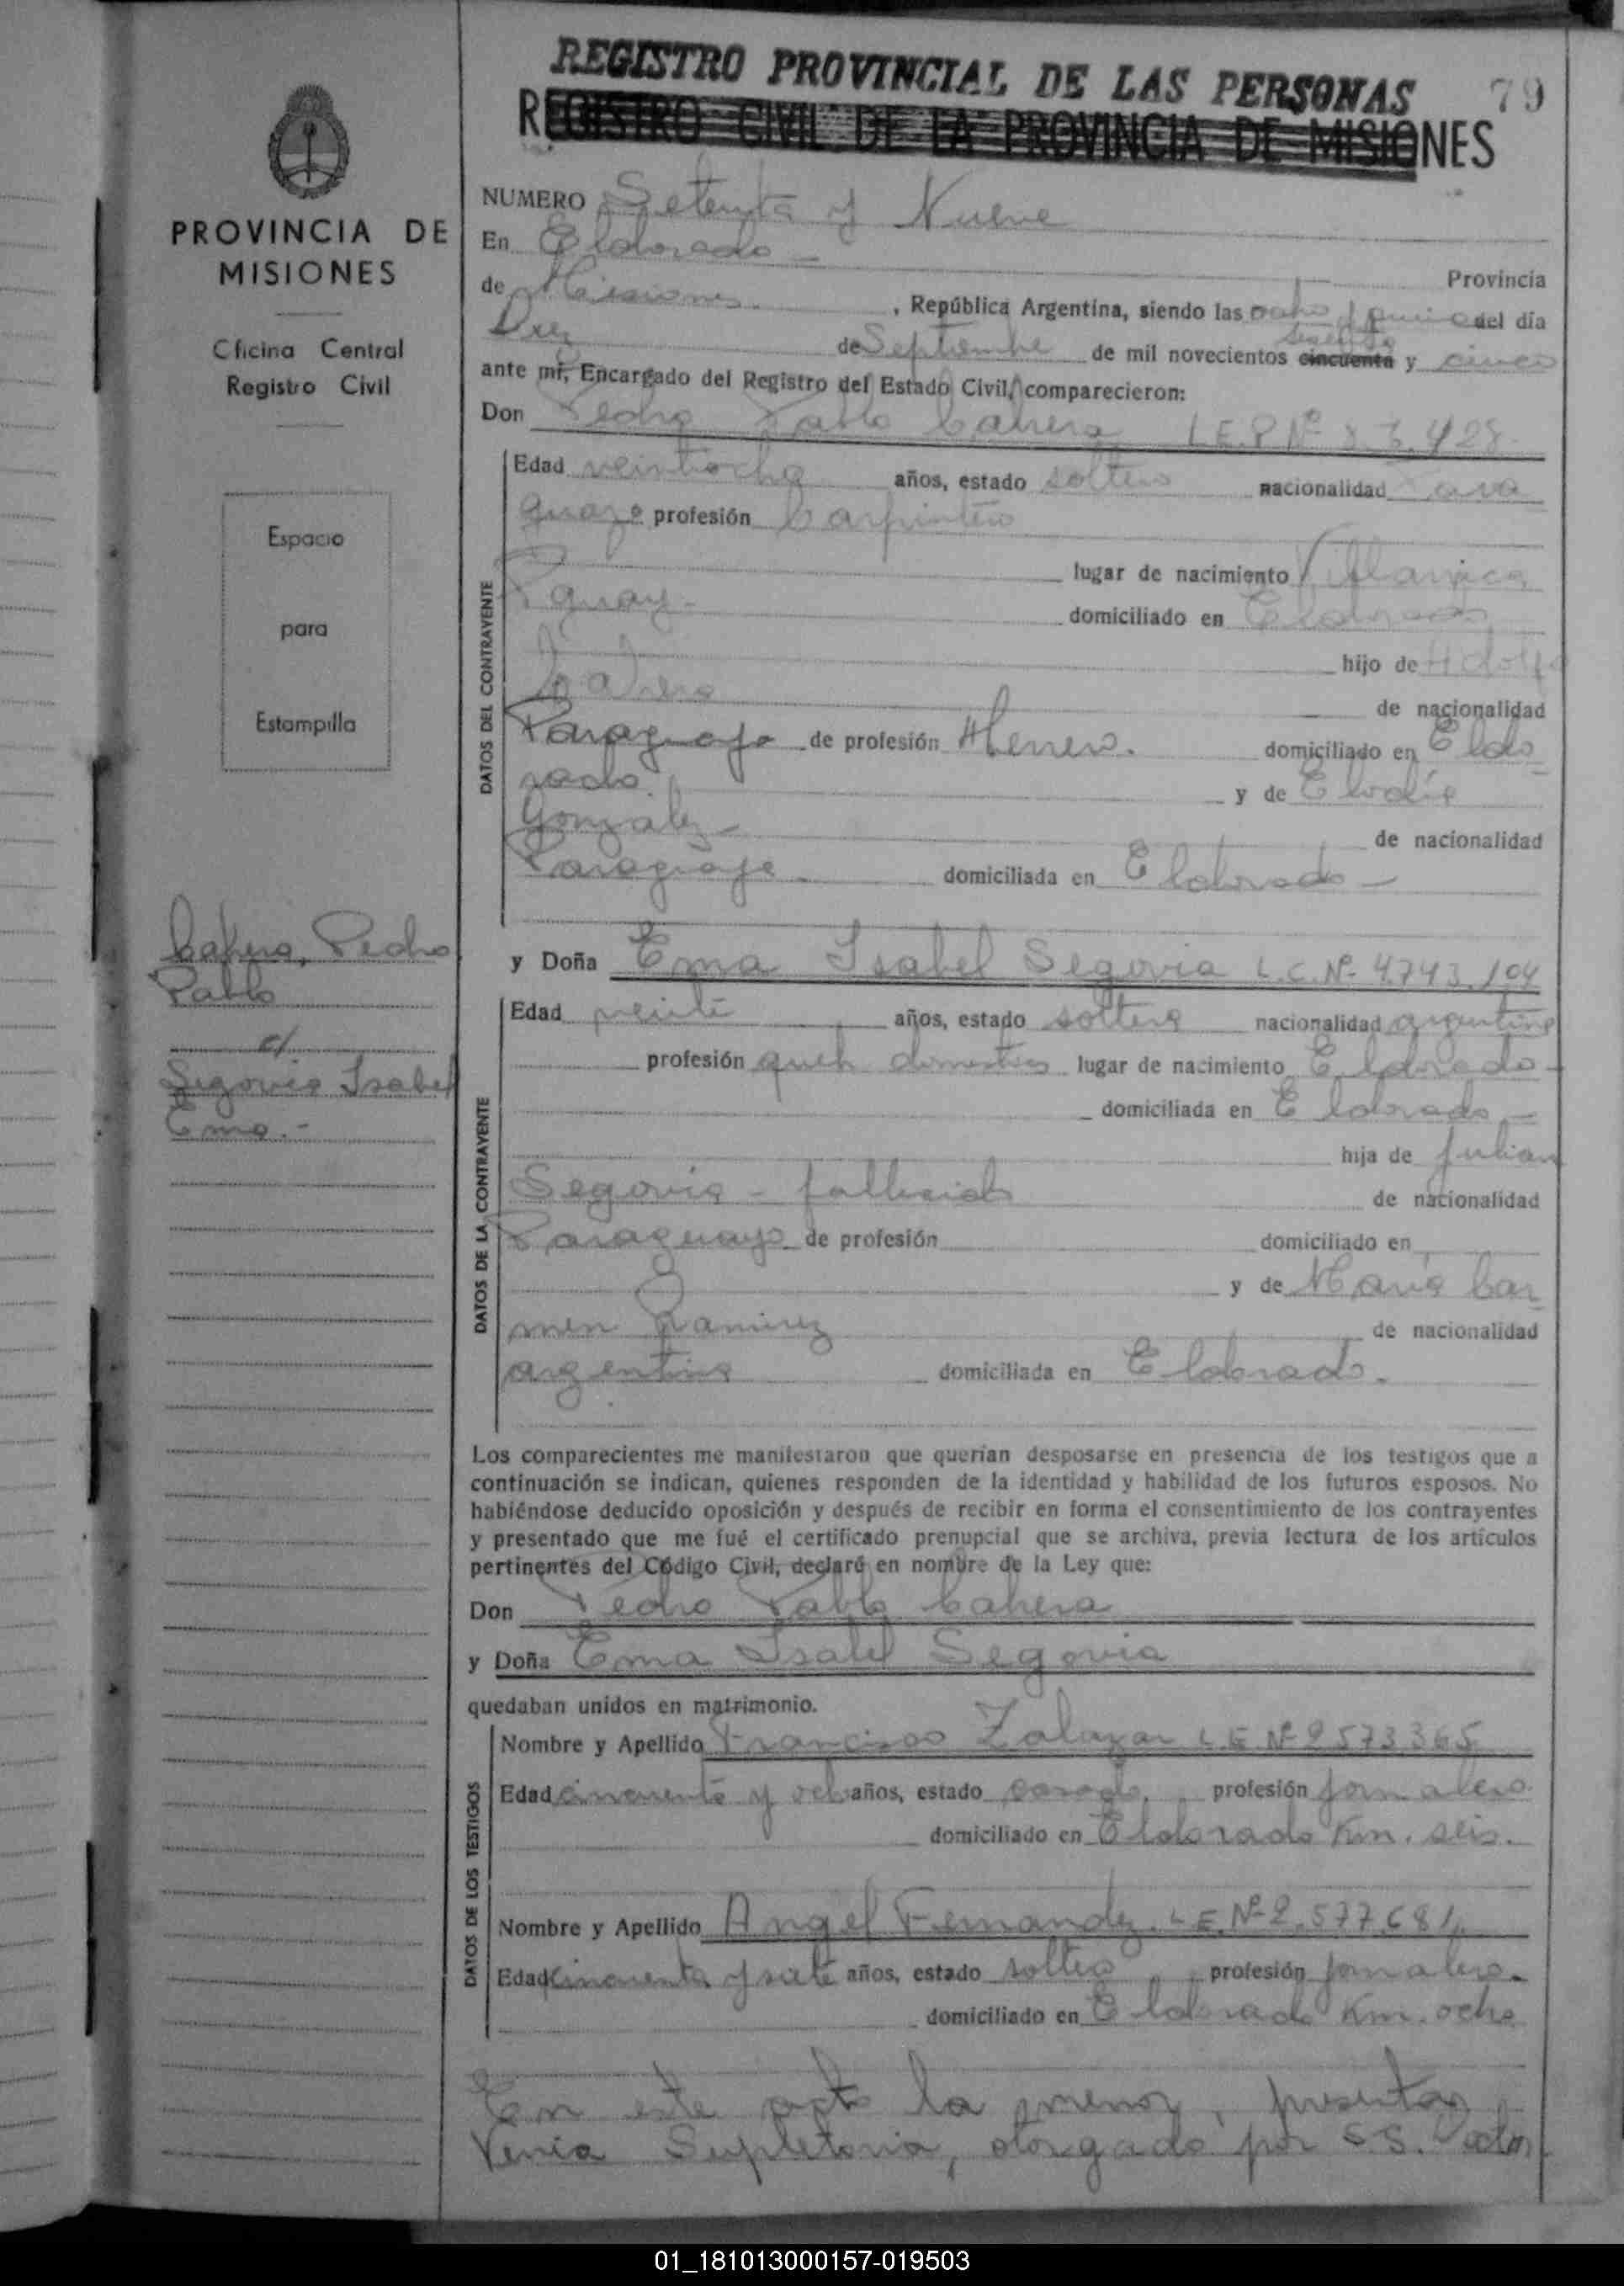 REGISTRO PROVINCIAL DE LAS PERSONAS 79
REGISTRO CIVIL DE LA PROVINCIA DE MISIONES
PROVINCIA DE
MISIONES
Oficina Central
Registro Civil
Espacio
para
Estampilla
Cabrera, Pedro
Pablo
c/
Segovia Isabel
Ema.-
NUMERO Setenta y Nueve
En Eldorado - Provincia
de Misiones. , República Argentina, siendo las ocho y del día
Diez de Septiembre de mil novecientos cincuenta sesenta y cinco
ante mí, Encargado del Registro del Estado Civil, comparecieron:
Don Pedro Pablo L.E.P.Nº 83.428
Edad veintiocho años, estado soltero nacionalidad Para
guayo profesión Carpintero
lugar de nacimiento Villarrica
Pguay- domiciliado en Eldorado
hijo de Adolfo
de nacionalidad
Paraguayo de profesión Herrero. domiciliado en Eldo
rado. y de Elodia
Gonzalez - de nacionalidad
Paraguaya - domiciliada en Eldorado -
y Doña Ema Isabel Segovia L.C.Nº 4.743.104
Edad veinte años, estado soltera nacionalidad argentina
profesión queh domesticos lugar de nacimiento Eldorado -
domiciliada en Eldorado -
hija de Julian
Segovia - fallecido de nacionalidad
Paraguayo de profesión domiciliado en
y de Maria Car
men Ramirez de nacionalidad
argentina domiciliada en Eldorado.
DATOS DEL CONTRAYENTE
DATOS DE LA CONTRAYENTE
Los comparecientes me manifestaron que querían desposarse en presencia de los testigos que a
continuación se indican, quienes responden de la identidad y habilidad de los futuros esposos. No
habiéndose deducido oposición y después de recibir en forma el consentimiento de los contrayentes
y presentado que me fué el certificado prenupcial que se archiva, previa lectura de los artículos
pertinentes del Código Civil, declaré en nombre de la Ley que:
Don Pedro Pablo
y Doña Ema Isabel Segovia
quedaban unidos en matrimonio.
Nombre y Apellido Francisco Zalazar L.E.Nº 2573.365
Edad cincuenta y ocho años, estado casado. profesión jornalero
domiciliado en Eldorado Km. seis.
Nombre y Apellido Angel Fernandez. L.E.Nº 2.577.681
Edad cincuenta y siete años, estado soltero profesión jornalero.
domiciliado en Eldorado Km. ocho
DATOS DE LOS TESTIGOS
En este acto la menor, presenta
Venia Supletoria, otorgado por S.S. Doctor
01_181013000157-019503